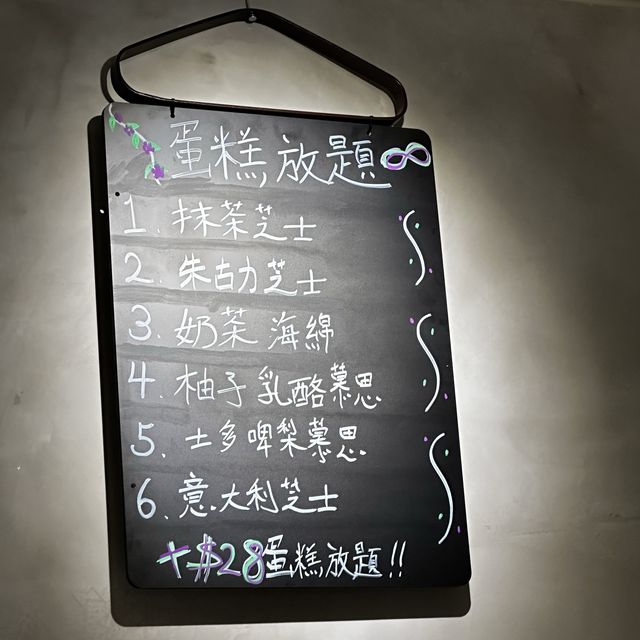 蛋糕放題∞
1. 抹茶芝士
2. 朱古力芝士
3. 奶茶海綿
4. 柚子乳酪慕思
5. 士多啤梨慕思
6. 意大利芝士
+$28蛋糕放題!!